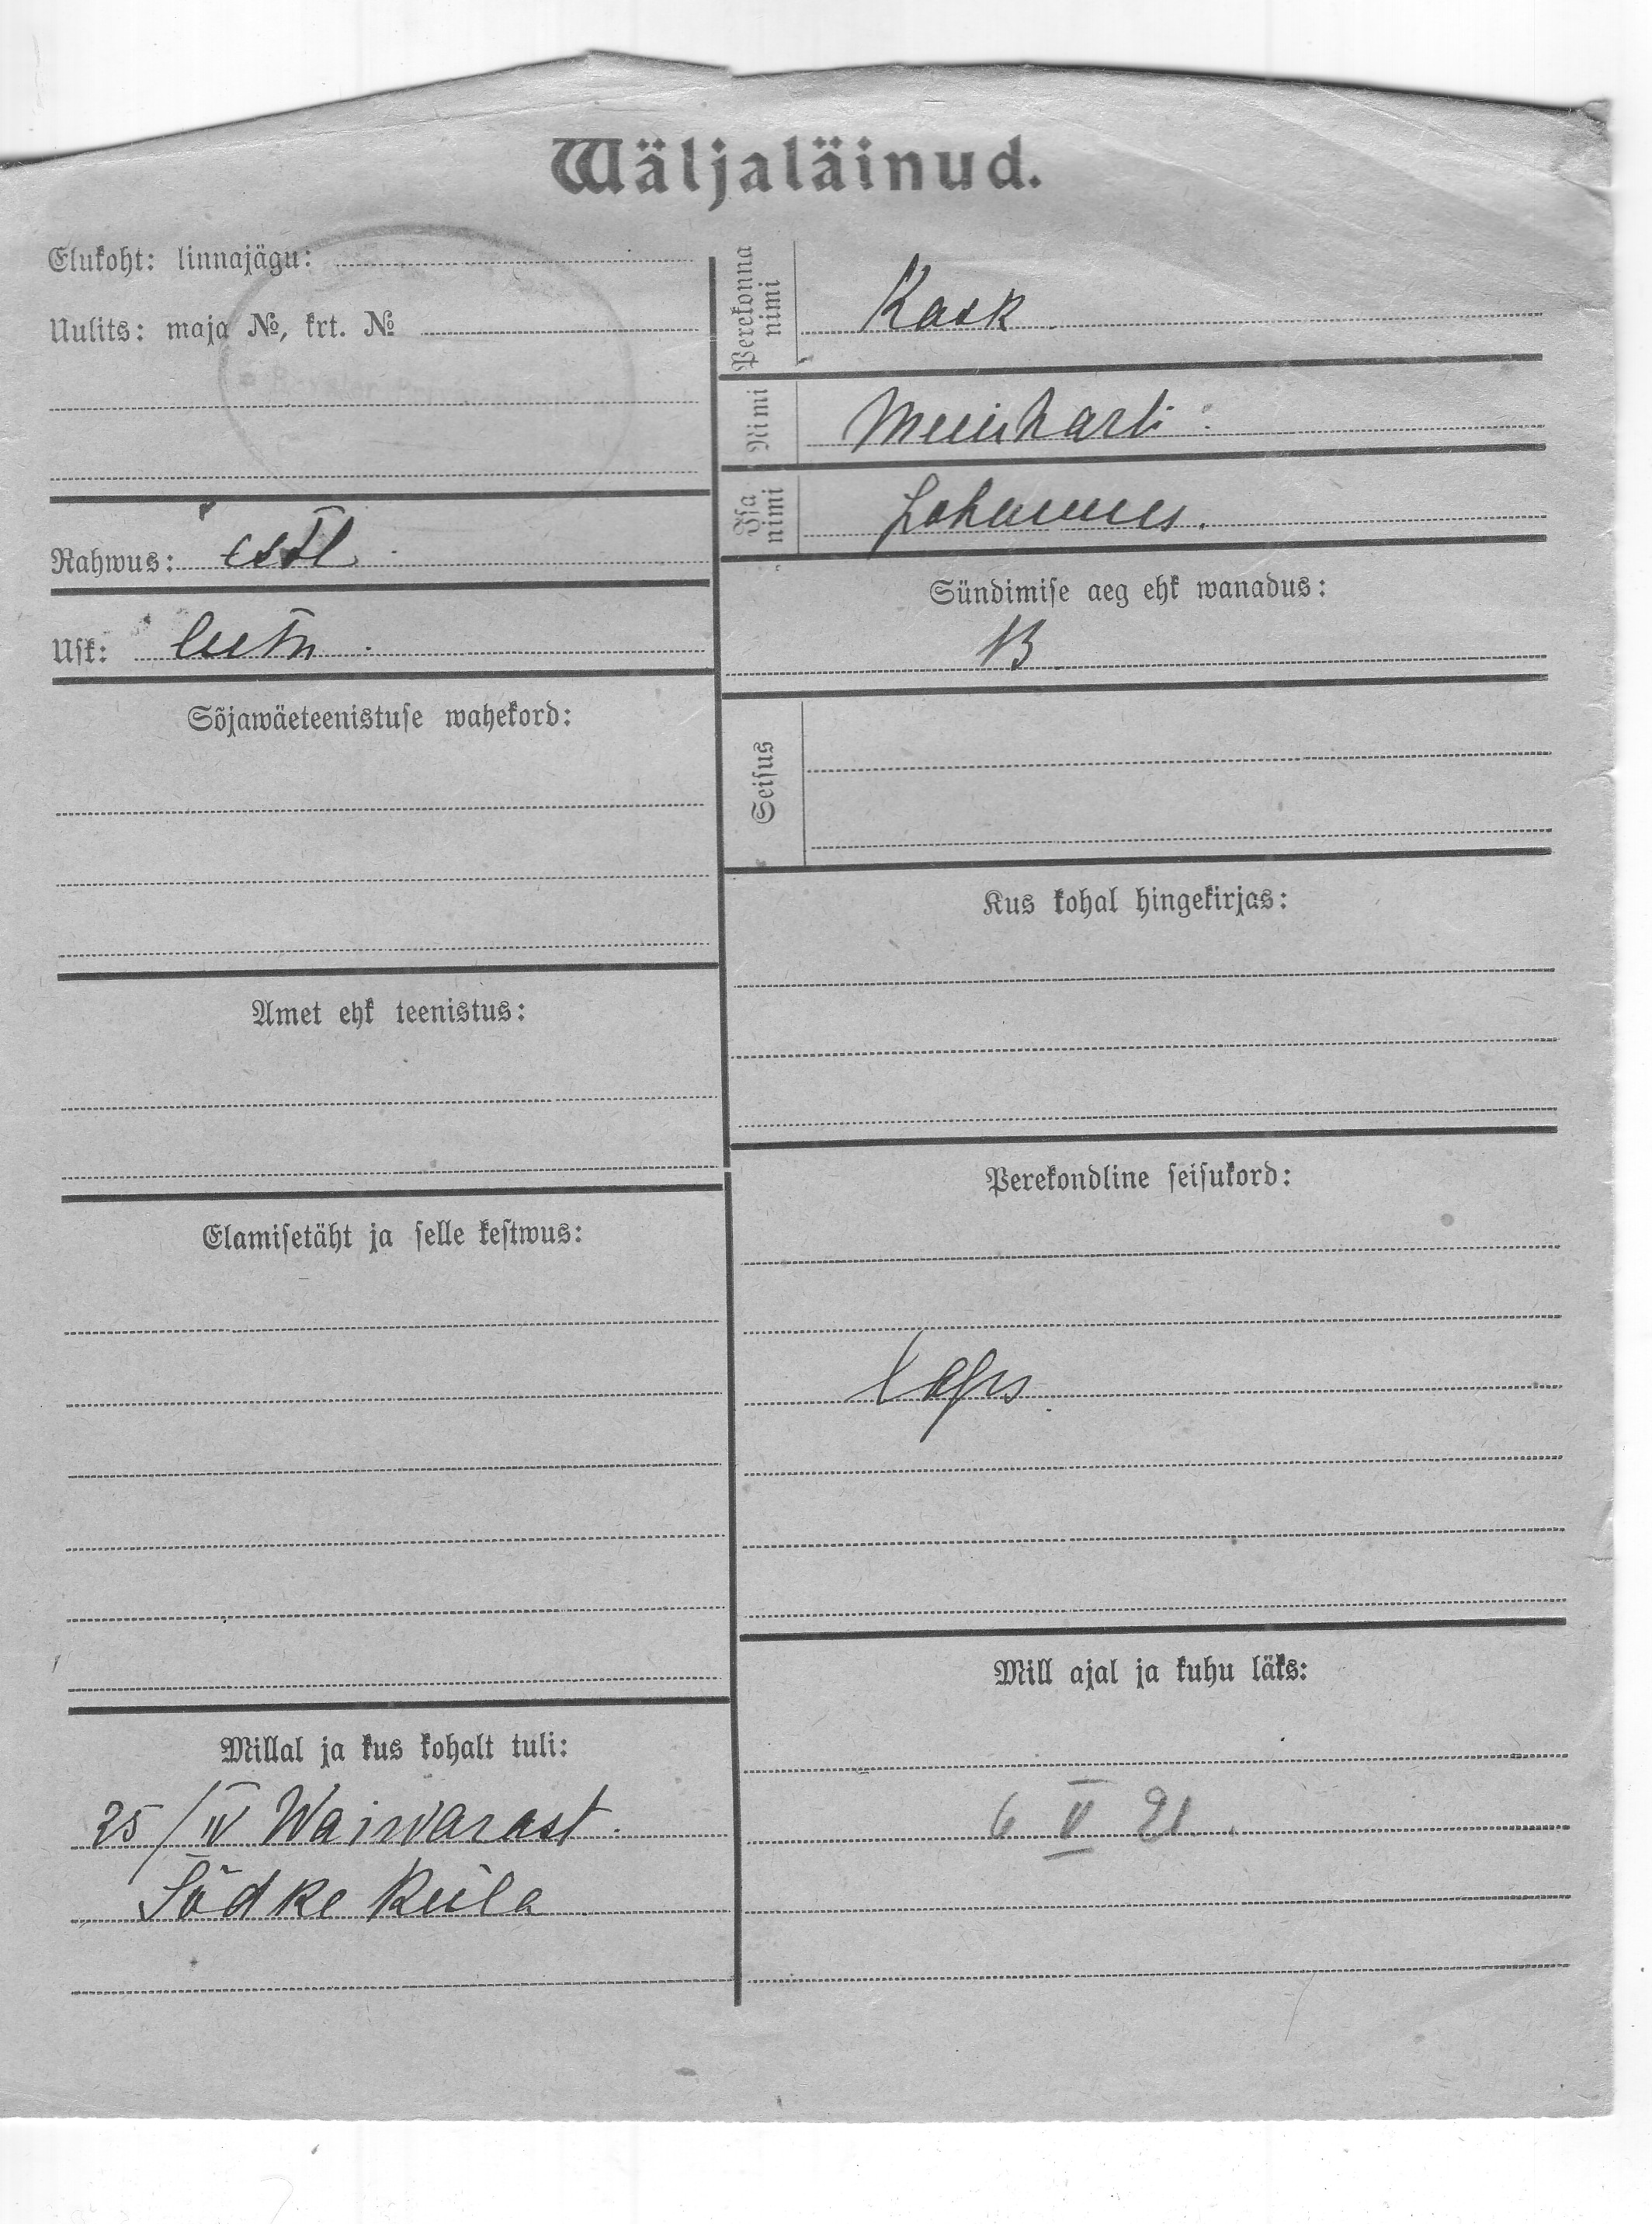 Wäljaläinud.
Elukoht: linnajägu:
Uulits: maja №, krt. №
Rahwus: estl.
Usk: luth.
Sõjawäeteenistuse wahekord:
Amet ehk teenistus:
Elamisetäht ja selle kestwus:
Millal ja kus kohalt tuli:
25/IV Waiwarast.
Sõdke küla
Perekonna nimi Kask.
Nimi Meinhart.
Isa nimi Johannes.
Sündimise aeg ehk wanadus:
13
Seisus
Kus kohal hingekirjas:
Perekondline seisukord:
Laps.
Mill ajal ja kuhu läks:
6 V 21.